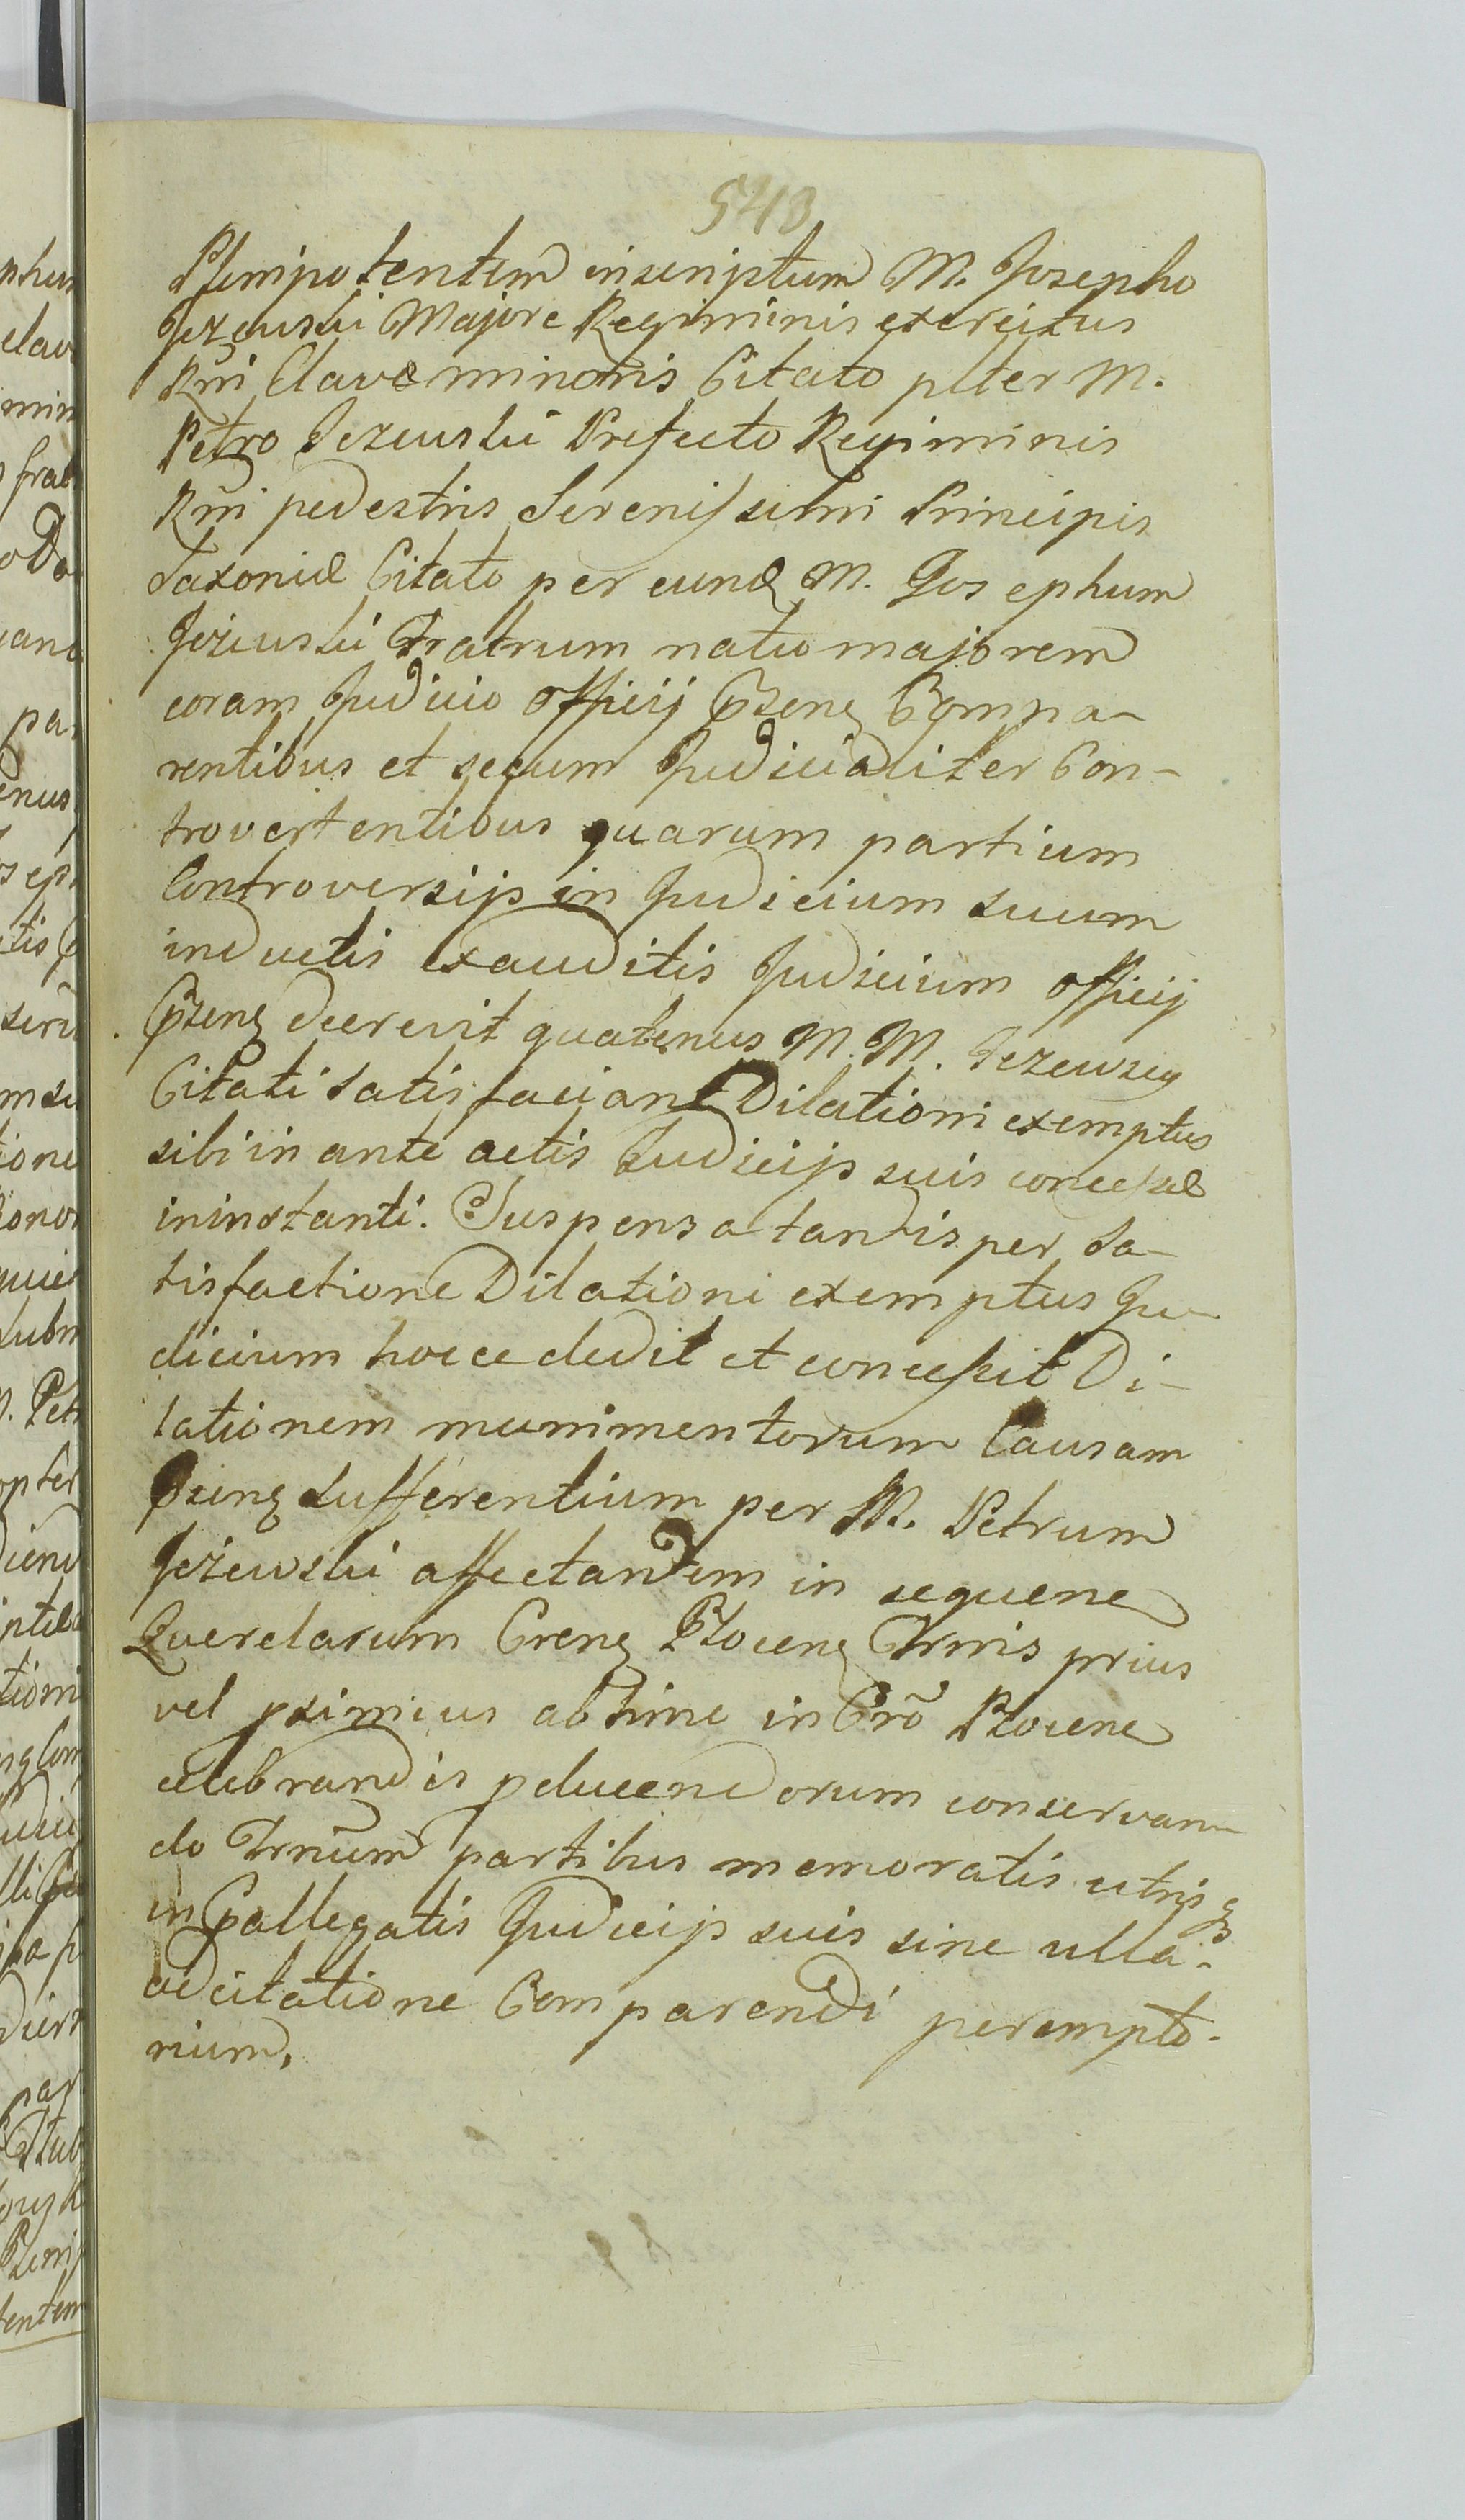 543
Plenipotentem inscriptum M. Josepho
Jezewski Majore Regiminis exercitus
Rni Clavæ minoris Citato pster M.
Petro Jezewski Prefecto Regiminis
Rni pedestris Serenissimi Principis
Saxoniæ Citato per eund M. Josephum
Jeżewski Fratrum natu majorem
coram Judicio Officij Psenq Compa-
rentibus et secum Judicialiter Con-
trovertentibus quarum partium
Controversijs in Judicium suum
inductis exauditis Judicium officij
Psenq decrevit quatenus M. M. Jezewscy
Citati satisfaciant Dilationi exemptus
sibi in ante actis Judicijs suis concessæ
in instanti. Suspensa tandisper sa-
tisfactione Dilationi exemptus Ju-
dicium hocce dedit et concessit Di-
lationem munimentorum Causam
Psenq sufferentium per M. Petrum
Jeżewski affectandem in sequen
Querelarum Crenq Plocenq Trnis prius
vel pximius abhinc in Cro Plocen
celebrandis pducendorum conservan-
do Trnum partibus memoratis utrisq
in Pallegatis Judicijs suis sine ulla
adcitatione Comparendi perempto-
rium,